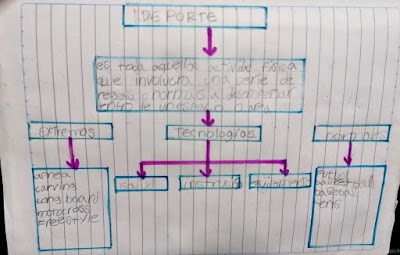 DEPORTE
es toda aquella actividad fisica
que involucra una serie de
reglas o normas a desempeñar
dentro de un espacio o area
Extremos
Tecnologios
normales
canning
long board
motocross
FREESTYLE
salud
equipamento
basketball
tenis